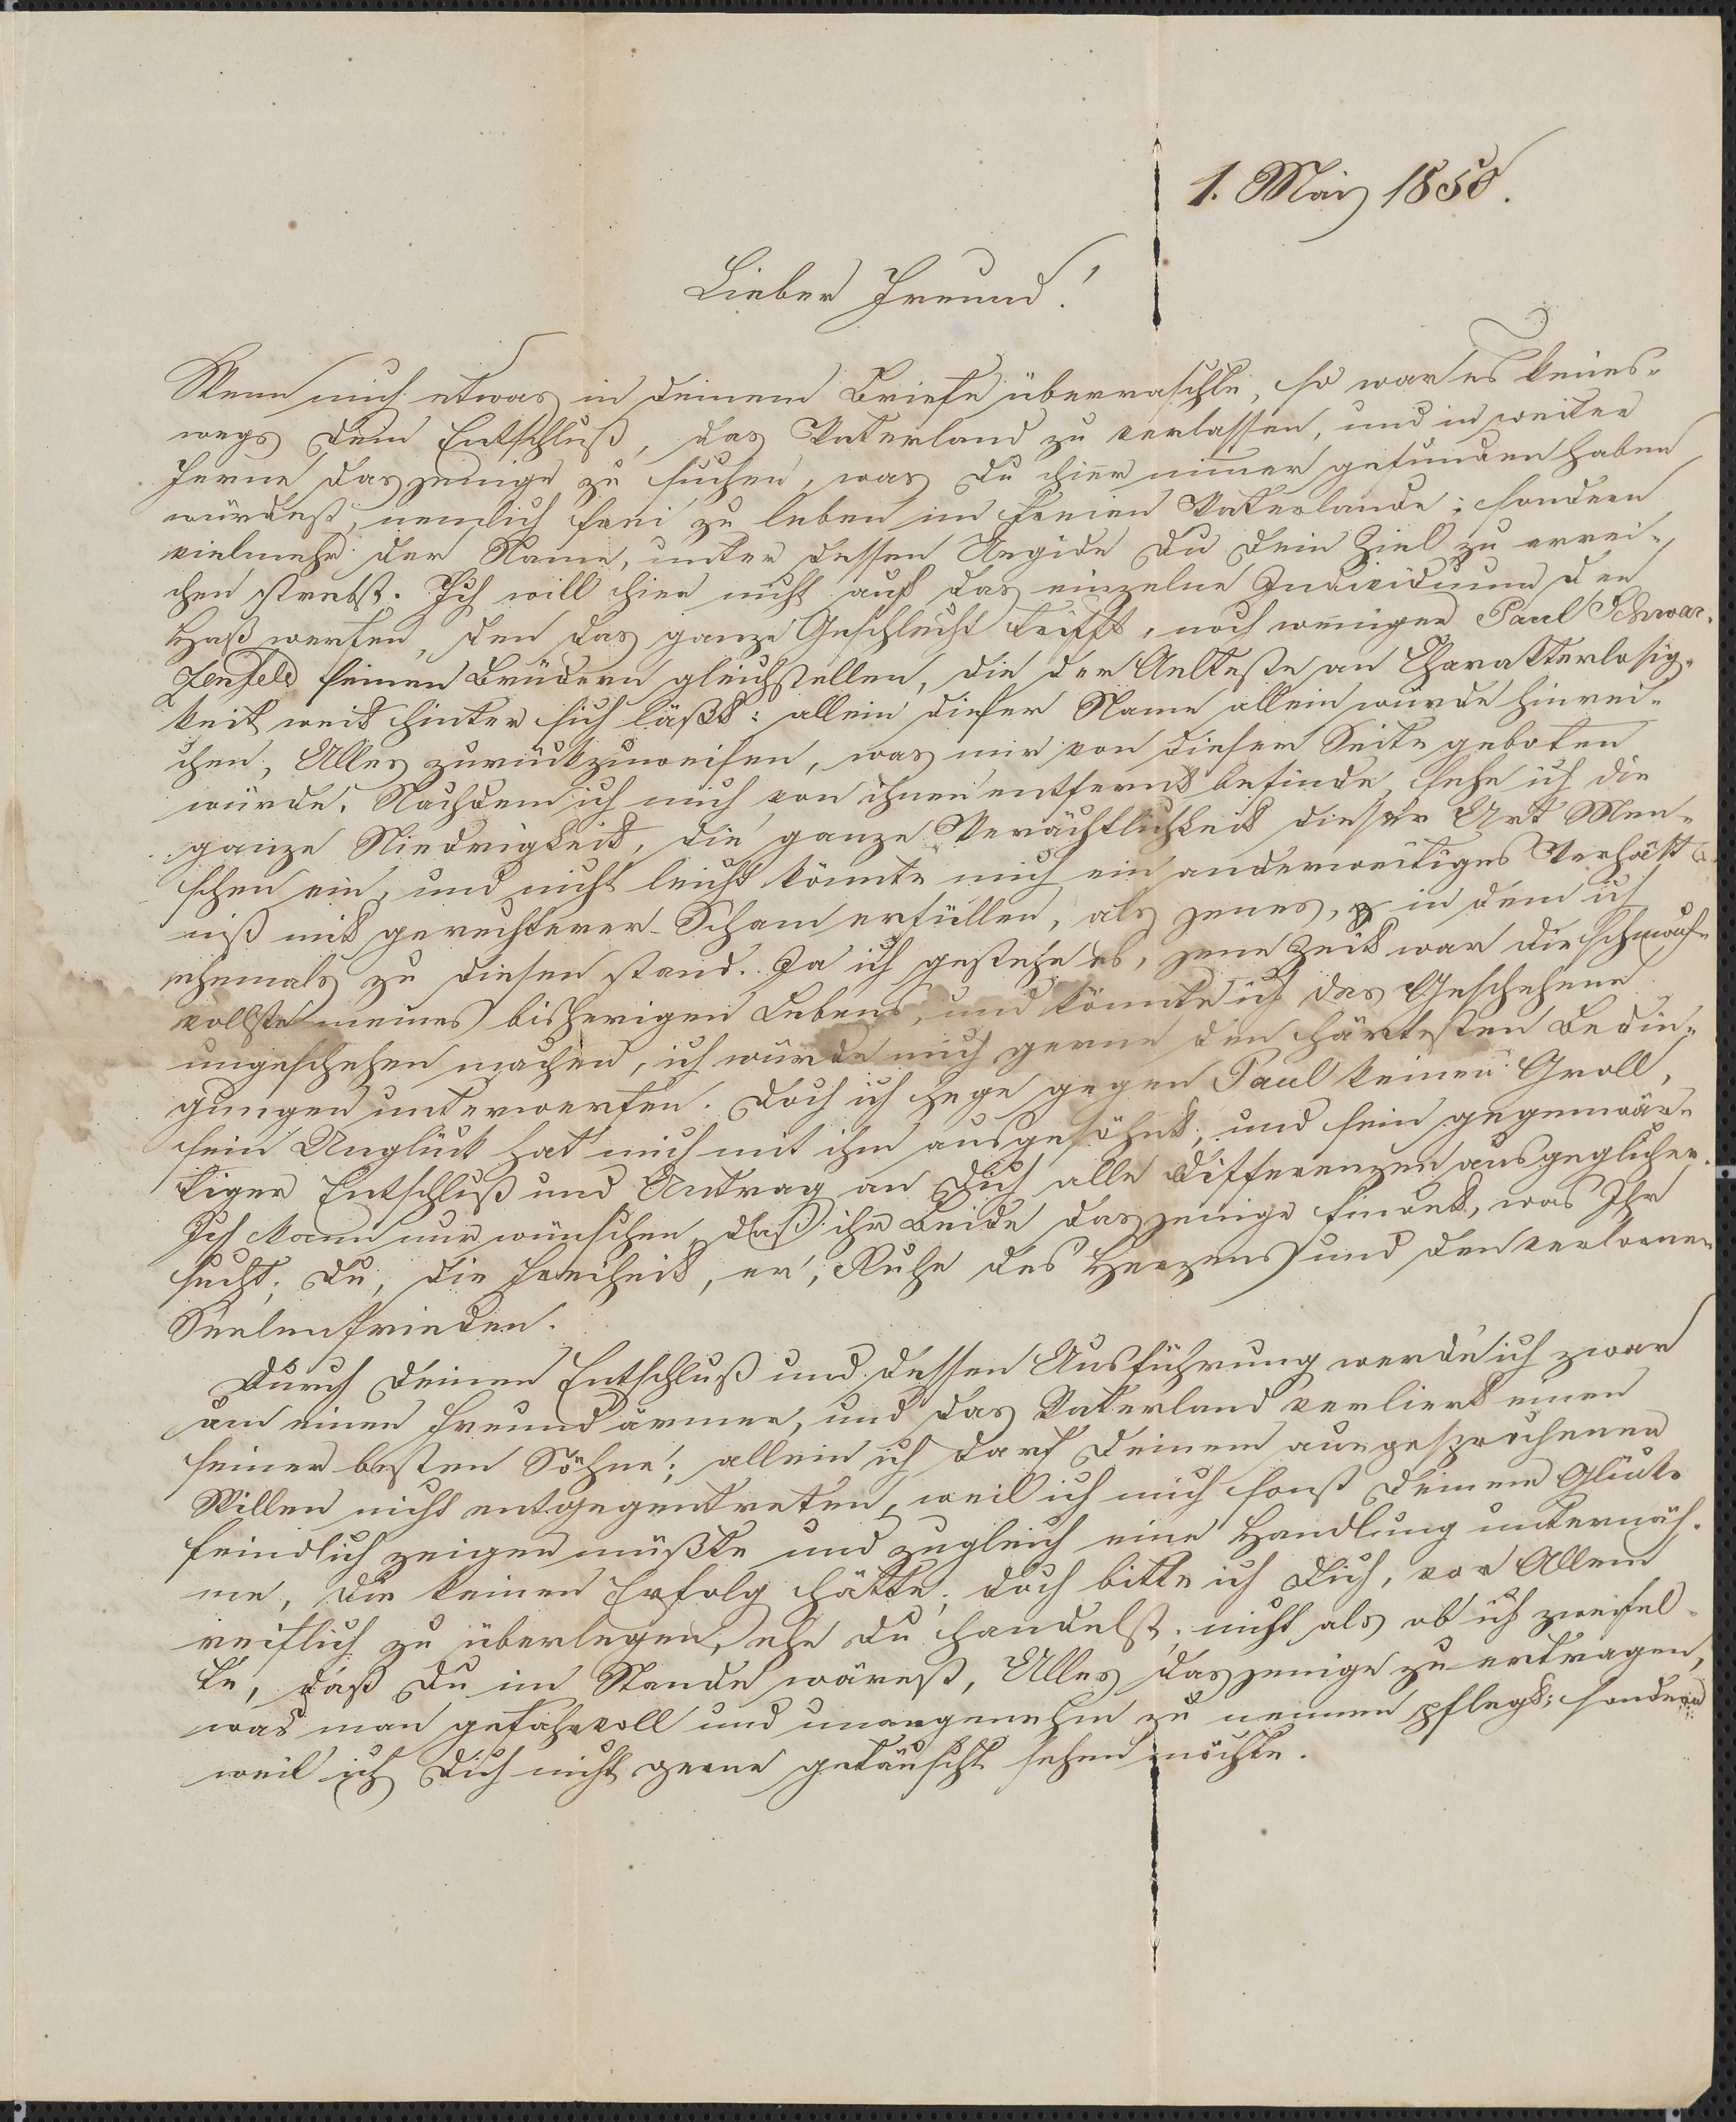 1. Mai 1850.
Lieber Freund!
Wenn mich etwas in deinem Briefe überraschte, so war es keines-
wegs dein Entschluß, das Vaterland zu verlassen, und in weiter
Ferne dasjenige zu suchen, was du hier nimmer gefunden haben
würdest, nemlich frei zu leben im freien Vaterlande; sondern
vielmehr der Name, unter dessen Aegide du dein Ziel zu errei-
chen strebst. Ich will hier nicht auf das einzelne Individuum den
Haß werfen, den das ganze Geschlecht trifft, noch weniger Paul Schwar-
zenfeld seinen Brüdern gleichstellen, die der Aelteste an Charakterlosig-
keit weit hinter sich läßt: allein dieser Name allein würde hinrei-
chen, Alles zurückzuweisen, was mir von dieser Seite geboten
würde. Nachdem ich mich von ihnen entfernt befinde, sehe ich die
ganze Niedrigkeit, die ganze Verächtlichkeit dieser Art Men-
schen ein, und nicht leicht könnte mich ein anderweitiges Verhält-
niß mit gerechterer Scham erfüllen, als jenes, in dem ich
ehemals zu diesen stand. Ja ich gestehe es, jene Zeit war die schmach-
vollste meines bisherigen Lebens, und könnte ich das Geschehene
ungeschehen machen, ich würde mich gerne den härtesten Bedin-
gungen unterwerfen. Doch ich hege gegen Paul keinen Groll,
sein Unglück hat mich mit ihm ausgesöhnt, und sein gegenwär-
tiger Entschluß und Antrag an Dich alle Differenzen ausgeglichen.
Ich kann nur wünschen, daß ihr Beide dasjenige findet, was Ihr
sucht; Du, die Freiheit, er, Ruhe des Herzens und den verlornen
Seelenfrieden.
Durch deinen Entschluß und dessen Ausführung werde ich zwar
um einen Freund ärmer, und das Vaterland verliert einen
seiner besten Söhne; allein ich darf deinem ausgesprochenen
Willen nicht entgegentreten, weil ich mich sonst deinem Glück
feindlich zeigen müßte und zugleich eine Handlung unternäh-
me, die keinen Erfolg hätte; doch bitte ich Dich, vor Allem
reiflich zu überlegen, ehe du handelst; nicht als ob ich zweifel-
te, daß Du im Stande wärest, Alles dasjenige zu ertragen,
was man gefahrvoll und unangenehm zu nennen pflegt; sondern
weil ich Dich nicht gerne getäuscht sehen möchte.